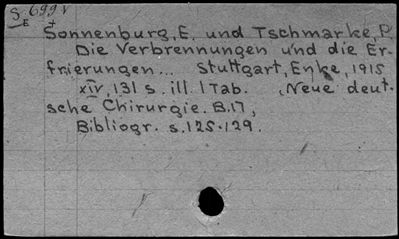 S 699 v
E +
Sonnenburg, E. und Tschmarke, P.
Die Verbrennungen und die Er-
frierungen... Stuttgart, Enke, 1915
XIV, 131 s. ill. 1 Tab. (Neue deut-
sche Chirurgie. B.17,
Bibliogr. s.125-129.